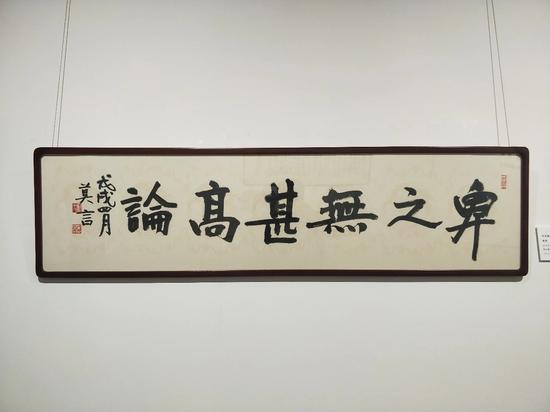 卑之無甚高論
戊戌四月
莫言